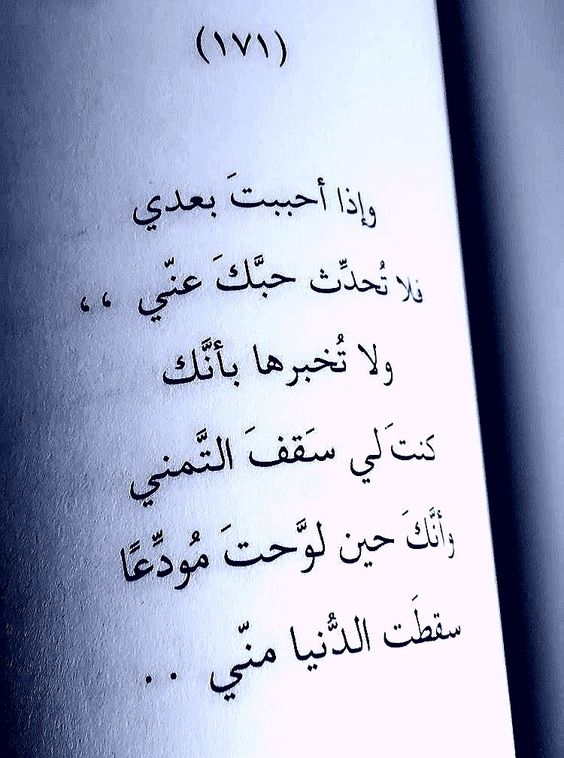 (١٧١)
وإذا أحببتَ بعدي
فلا تُحدِّث حبَّكَ عنّي ،،
ولا تُخبرها بأنَّك
كنتَ لي سَقفَ التَّمني
وأنَّكَ حين لوَّحتَ مُودِّعًا
سقطَت الدُّنيا منّي ..